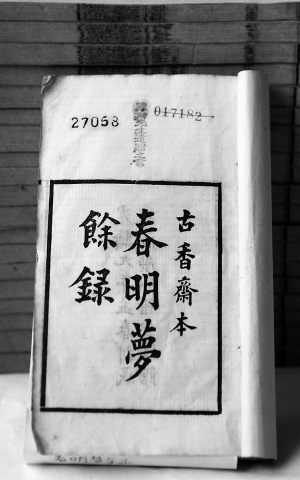 27058
017182
古香齋本
春明夢
餘録